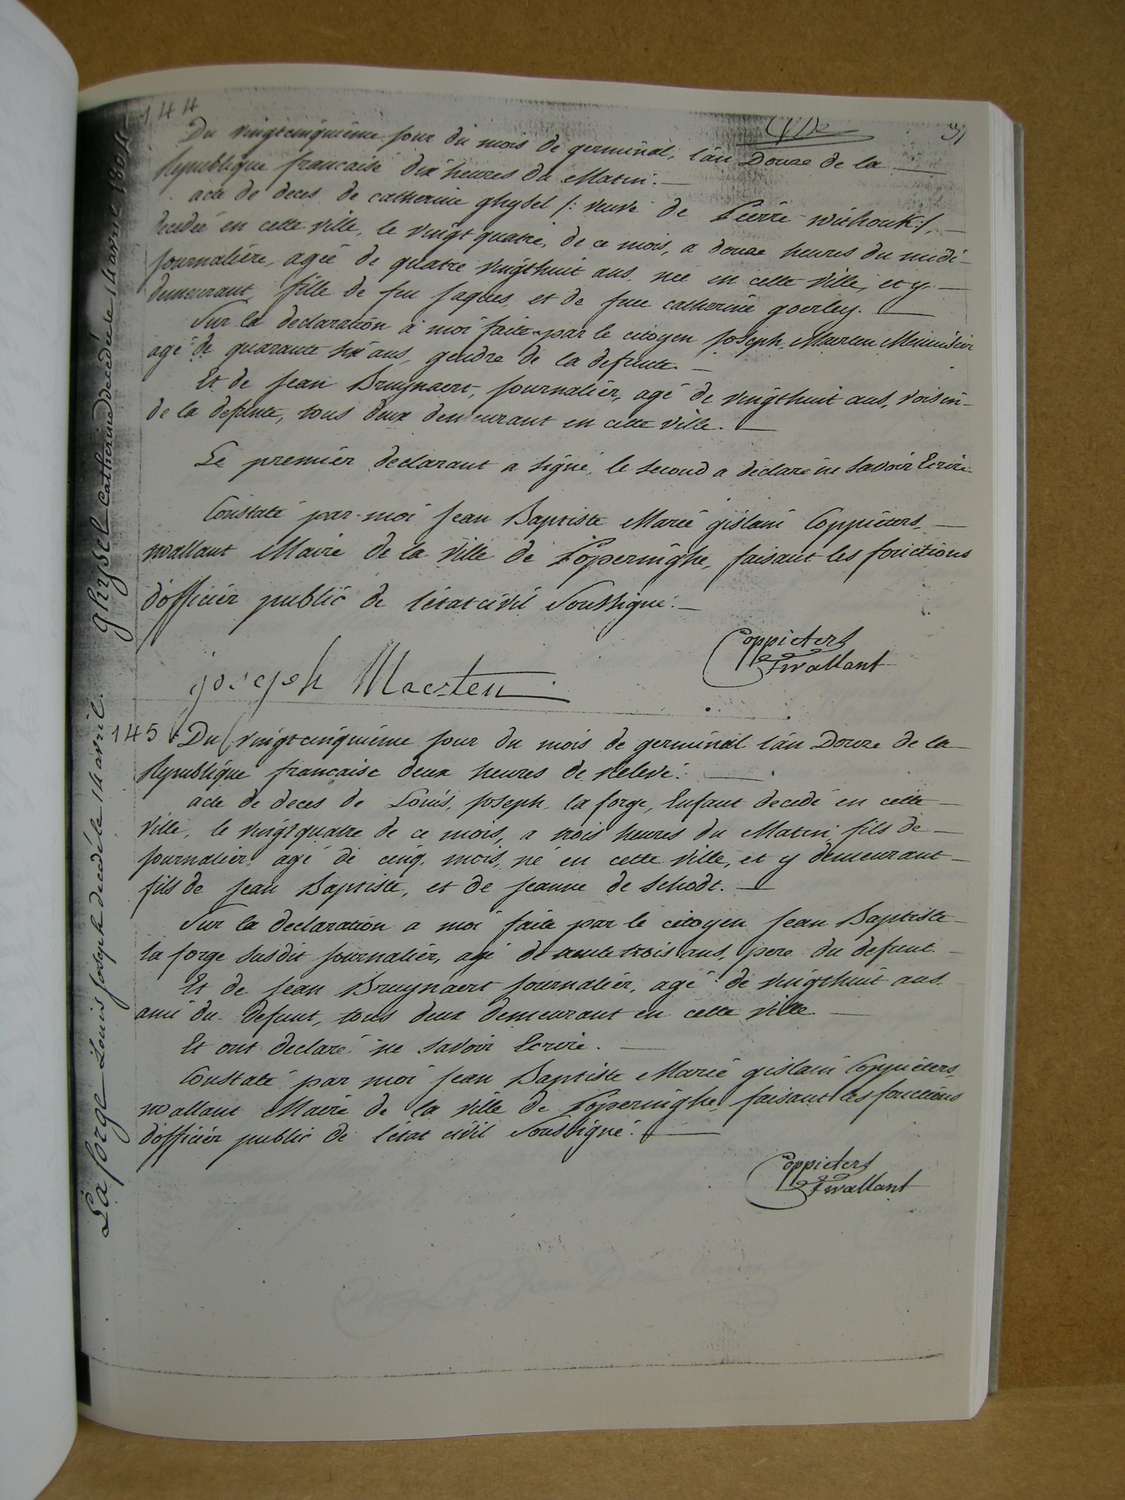 144
91
Du vingtcinquiéme jour du mois de germinal, l'an Douze de la
Republique francaise dix heures du Matin.
acte de deces de catherine ghysel /: veuve de Pierre :/,
decedée en cette ville, le vingt quatre, de ce mois, a douze heures du midi
journalière, agée de quatre vingthuit ans, née en cette ville, et y
demeurant, fille de feu jaques, et de feue catherine goerley.
Sur la declaration a moi faite par le citoyen joseph Maerten
agé de quarante ans, gendre de la defunte.
Et de jean Bruynaert, journalier, agé de vingthuit ans, voisin
de la defunte, tous deux demeurant en cette ville.
Le premier declarant a signé, le second a declaré ne savoir Ecrire
Constaté par moi jean Baptiste Marie gislain Coppieters
wallant Maire de la ville de Poperinghe, faisant les fonctions
d'officier public de l'état civil Soussigné.
Coppieters
Twallant
joseph Maerten
145
Du vingtcinquiéme jour du mois de germinal l'an Douze de la
Republique francaise deux heures de relevé.
acte de deces de Louis, joseph, la forge, Enfant decedé en cette
ville, le vingtquatre de ce mois, a trois heures du Matin, fils de
journalier, agé de cinq mois, né en cette ville, et y demeurant
fils de jean Baptiste, et de jeanne de Schodt.
Sur la declaration a moi faite par le citoyen jean Baptiste
la forge susdit journalier, agé de trente trois ans, pere du defunt
Et de jean Bruynaert journalier, agé de vingthuit ans
ami du defunt, tous deux demeurant en cette ville
Et ont declaré ne savoir Ecrire.
Constaté par moi jean Baptiste Marie gislain Coppieters
wallant Maire de la ville de Poperinghe faisant les fonctions
d'officier public de l'état civil Soussigné.
Coppieters
Twallant
ghysel Catherine decédée le 14 avril 1804
La forge Louis joseph decédé le 14 avril.